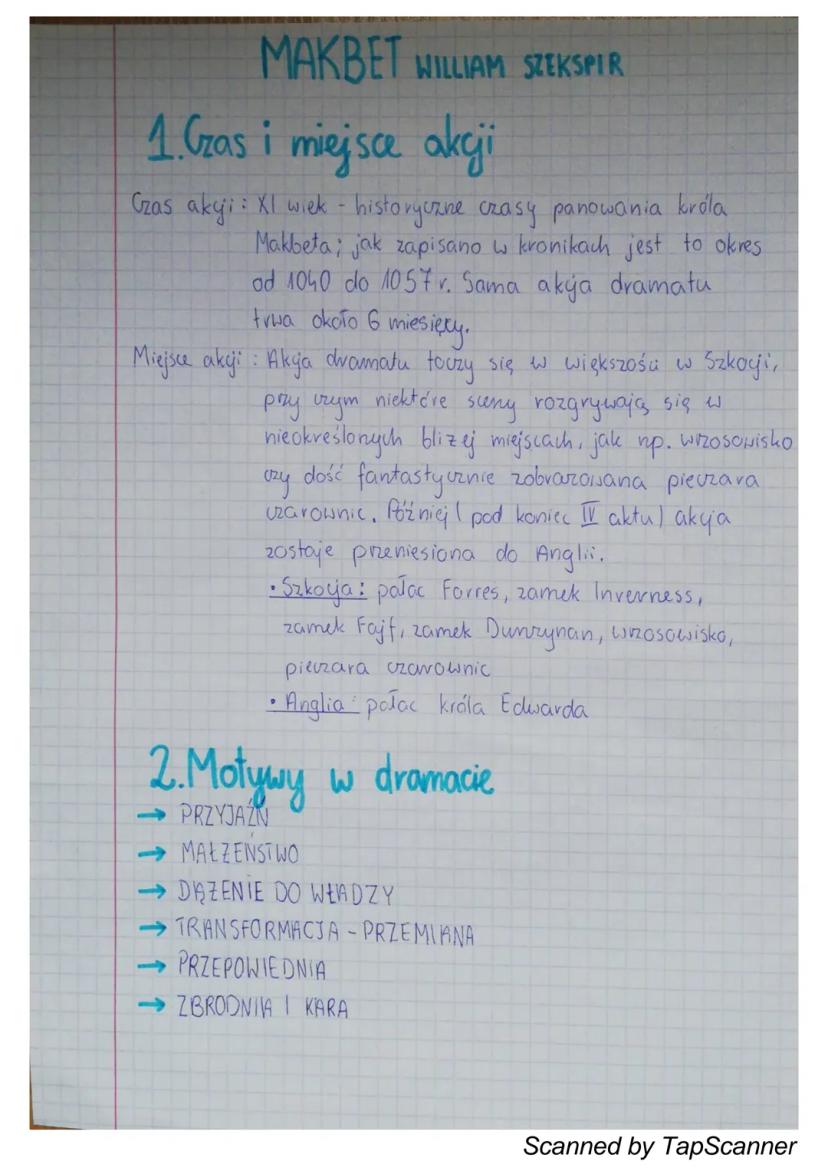 MAKBET WILLIAM SZEKSPIR
1. Czas i miejsce akcji
Czas akcji: XI wiek - historyczne czasy panowania króla
Makbeta; jak zapisano w kronikach jest to okres
od 1040 do 1057 r. Sama akcja dramatu
trwa około 6 miesięcy.
Miejsce akcji: Akcja dramatu toczy się w większości w Szkocji,
przy czym niektóre sceny rozgrywają się w
nieokreślonych bliżej miejscach, jak np. wrzosowisko
czy dość fantastycznie zobrazowana pieczara
czarownic. Później (pod koniec IV aktu) akcja
zostaje przeniesiona do Anglii.
• Szkocja: pałac Forres, zamek Inverness,
zamek Fajf, zamek Dunzynan, wrzosowisko,
pieczara czarownic
• Anglia: pałac króla Edwarda
2. Motywy w dramacie
→ PRZYJAŹŃ
→ MAŁŻEŃSTWO
→ DĄŻENIE DO WŁADZY
→ TRANSFORMACJA - PRZEMIANA
→ PRZEPOWIEDNIA
→ ZBRODNIA I KARA
Scanned by TapScanner